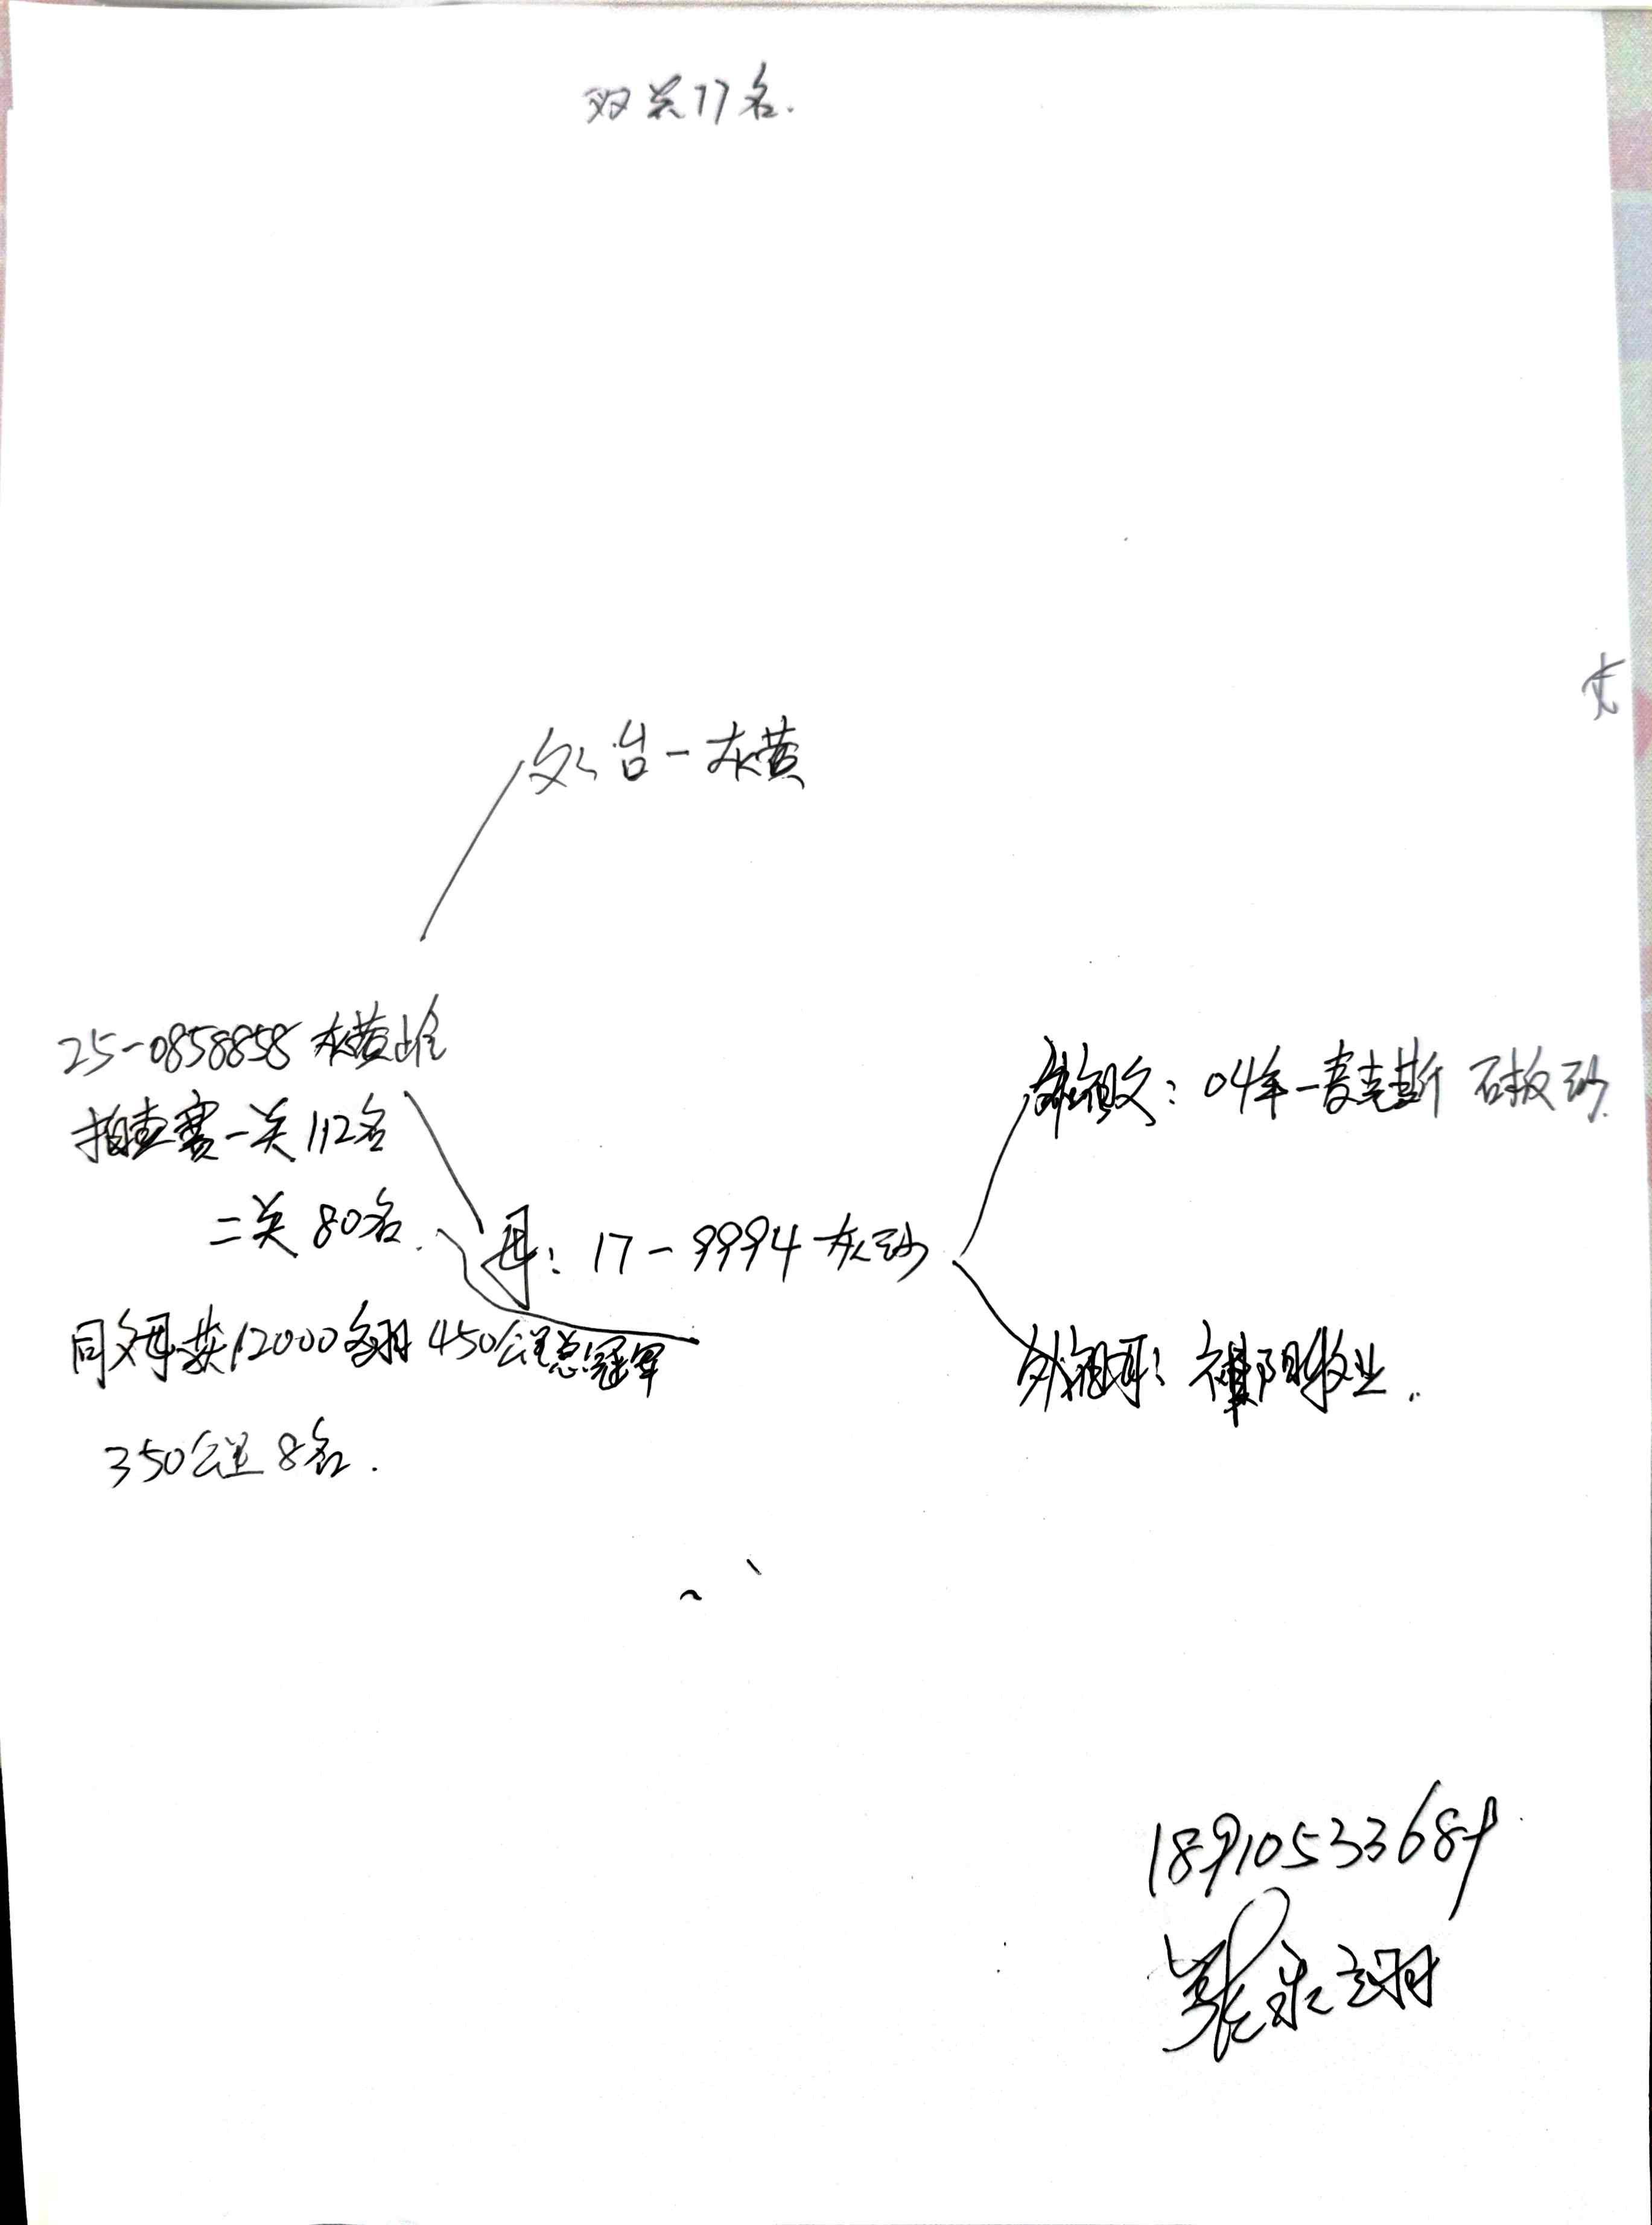 双关17名.
父: 台一灰黄
25-0858858 灰黄雄
拍查赛一关112名
二关 80名.
母: 17-9994 灰砂
外祖父: 04年一麦克斯 石板砂
外祖母: 阳牧业.
同父母获12000多羽 450公里总冠军
350公里 8名.